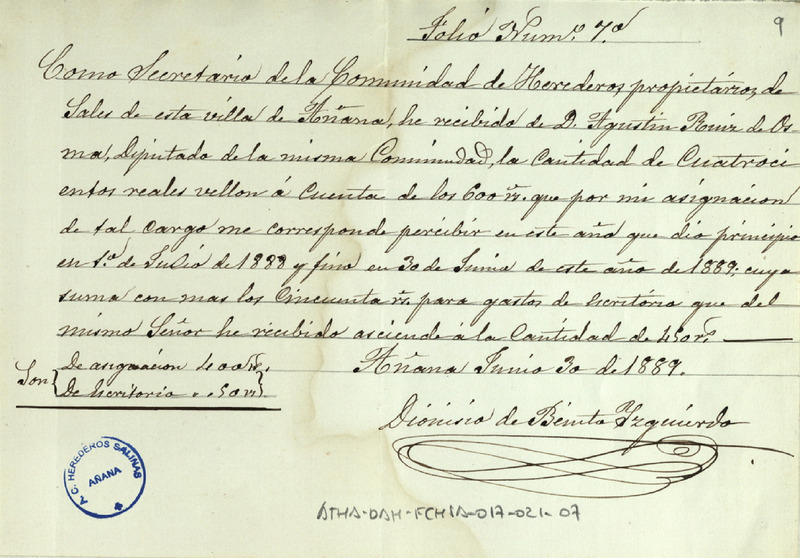 Folio Num.º 7.º
9
Como Secretario de la Comunidad de Herederos propietarios de
Sales de esta villa de Añana, he recibido de D. Agustin Ruiz de Os-
ma, Diputado de la misma Comunidad, la Cantidad de Cuatroci
entos reales vellon á Cuenta de los 600 rs. que por mi asignacion
de tal cargo me corresponde percibir en este año que dio principio
en 1.º de Julio de 1888 y fino en 30 de Junio de este año de 1889: cuya
suma con mas los Cincuenta rs. para gastos de escritório que del
mismo Señor he recibido asciende á la Cantidad de 450 rs.
Son
De asignacion 400 rs.
De Escritorio " " 50 rs
Añana Junio 30 de 1889.
Dionisio de Benito Yzquierdo
A.C. HEREDEROS SALINAS
AÑANA
ATHA-DAH-FCHSA-017-021-07